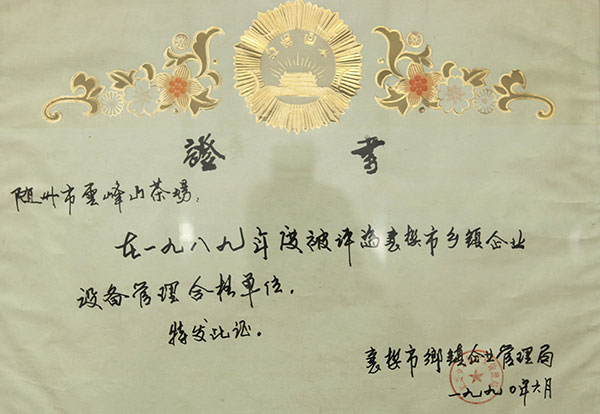 證書
随州市雲峰山茶場:
在一九八九年度被评为襄樊市乡镇企业
设备管理合格单位.
特发此证.
襄樊市鄉镇企业管理局
一九九〇年六月